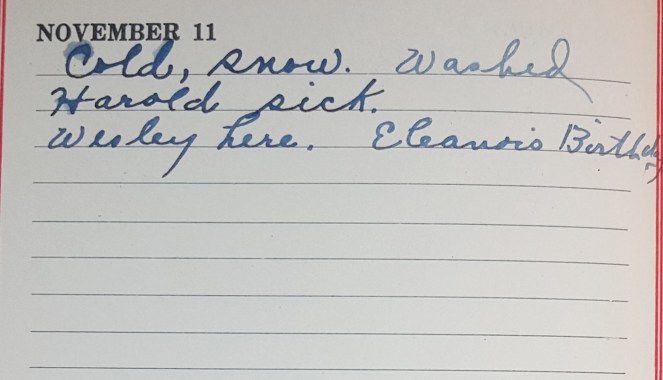 NOVEMBER 11
Cold, snow. Washed
Harold sick.
Wesley here. Eleanois Birthday